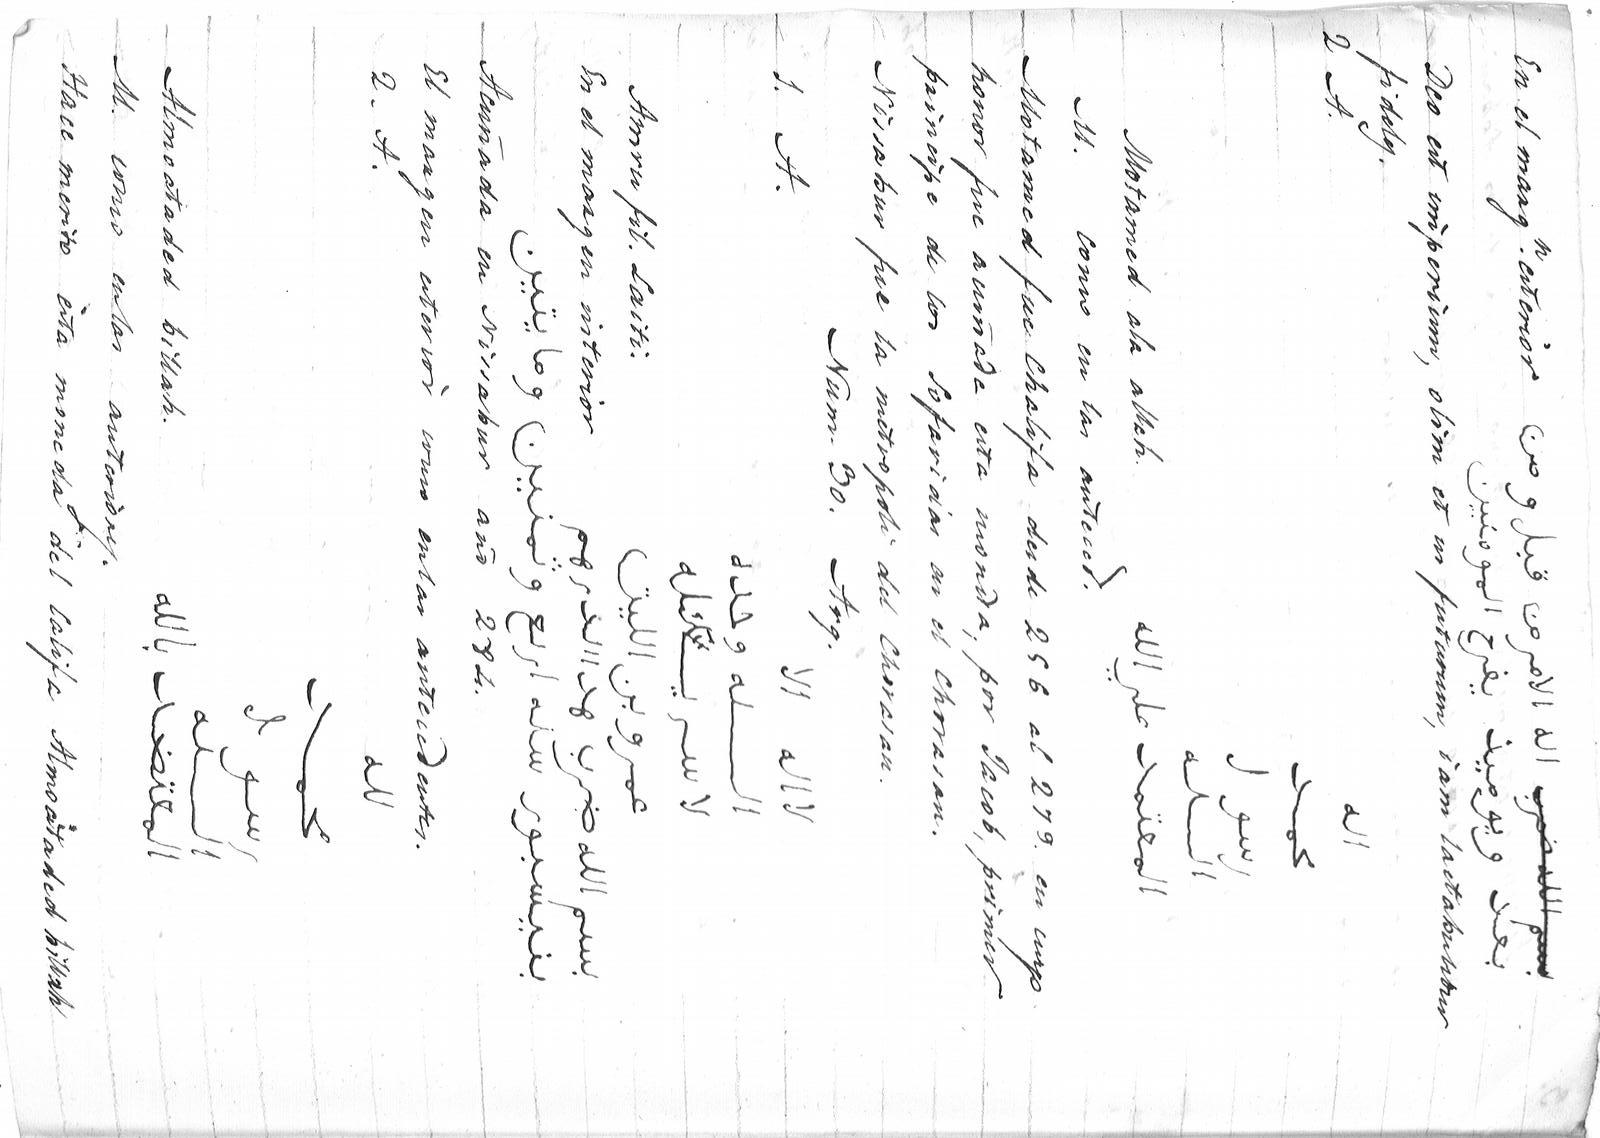 En el marg.n exterior بسم الله ضرب الله الامر من قبل و من
بعد و يوميذ يفرح المومنين
Deo est imperium, olim et in futurum, iam laetabuntur
fideles.
2. A.
لله
محمد
رسول
الله
Motamed ala allah. المعتمد على الله
M. como en las anteced.
Motamed fue Chalifa desde 256 al 279. en cuyo
honor fue acuñada esta moneda, por Jacob, primer
principe de los Sofaridas en el Chorasan.
Nissabur fue la metropoli del Chorasan.
Num. 30. Arg.
1. A. لا اله الا
الله وحده
لا شريك له
Amru fil. Laiti: عمرو بن الليث
En el margen interior بسم الله ضرب هذا الدرهم
بنيسبور سنه اربع و ثمنين ومايتين
Acuñada en Nissabur año 284.
El margen exterior como en las antecedentes.
2. A. لله
محمد
رسول
الله
Almoctaded billah. المعتضد بالله
M. como en las anteriores.
Hace merito esta moneda del Califa Almoátaded billah